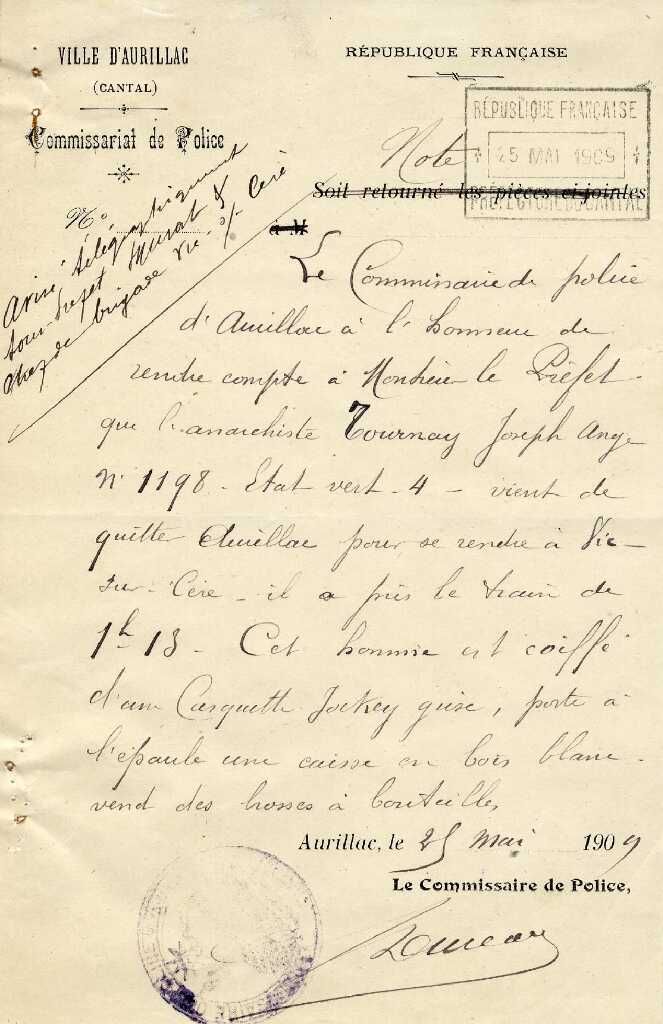 VILLE D'AURILLAC
(CANTAL)
Commissariat de Police
N°
RÉPUBLIQUE FRANÇAISE
RÉPUBLIQUE FRANÇAISE
25 MAI 1909
PRÉFECTURE DU CANTAL
Note
Soit retourné les pièces ci-jointes
à M
Avisé télégraphiquement
sous-préfet Murat &
chef de brigade Vic s/- Cère
Le Commissaire de police
d'Aurillac à l'honneur de
rendre compte à Monsieur le Préfet
que l'anarchiste Tournay Joseph Ange
N° 1198 - Etat vert - 4 - vient de
quitter Aurillac pour se rendre à Vic-
sur-Cère - il a pris le train de
1h-13 - Cet homme est coiffé
d'une Casquette Jockey grise, porte à
l'épaule une caisse en bois blanc -
vend des brosses à bouteilles
Aurillac, le 25 Mai 1909
Le Commissaire de Police,